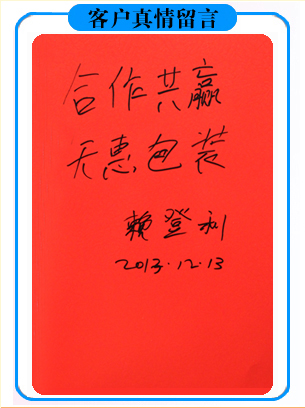 客户真情留言
合作共赢
天惠包装
赖登利
2013.12.13